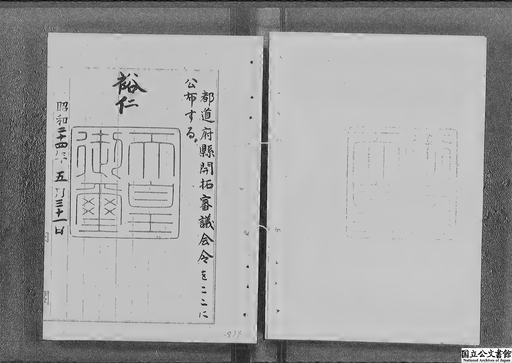 都道府縣開拓審議会令をここに
公布する。
裕仁
天皇
御璽
昭和二十四年五月三十一日
国立公文書館
National Archives of Japan